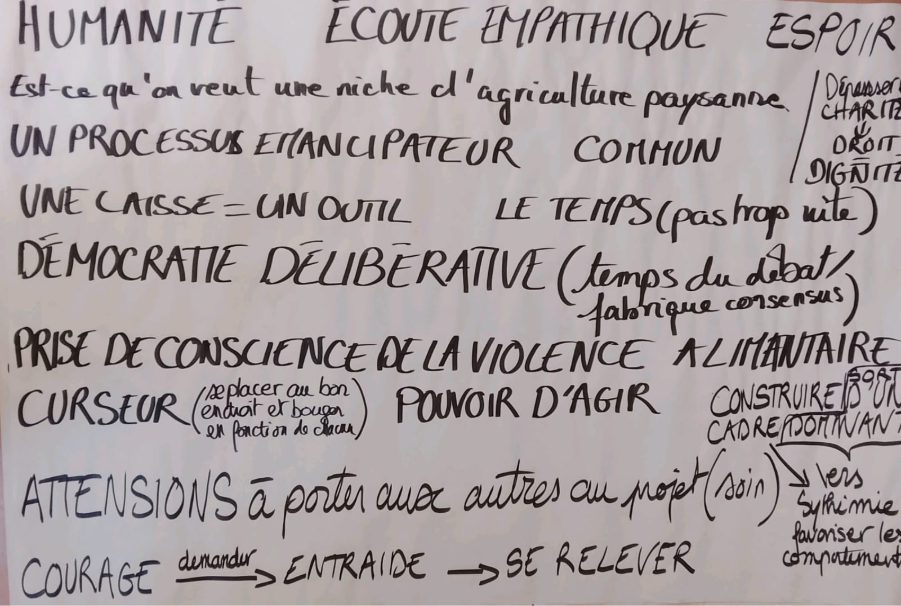 HUMANITÉ ÉCOUTE EMPATHIQUE ESPOIR
Est-ce qu'on veut une niche d'agriculture paysanne.
Dépasser
CHARITÉ
DROIT
DIGNITÉ
UN PROCESSUS EMANCIPATEUR COMMUN
UNE CAISSE = UN OUTIL LE TEMPS (pas trop vite)
DÉMOCRATIE DÉLIBÉRATIVE (temps du débat/
fabrique consensus)
PRISE DE CONSCIENCE DE LA VIOLENCE ALIMANTAIRE
CURSEUR (se placer au bon
endroit et bouger
en fonction de chacun)
POUVOIR D'AGIR
CONSTRUIRE
CADRE DOMINANT
ATTENSIONS à porter aux autres au projet (soin)
vers
favoriser les
comportement
COURAGE demander → ENTRAIDE → SE RELEVER